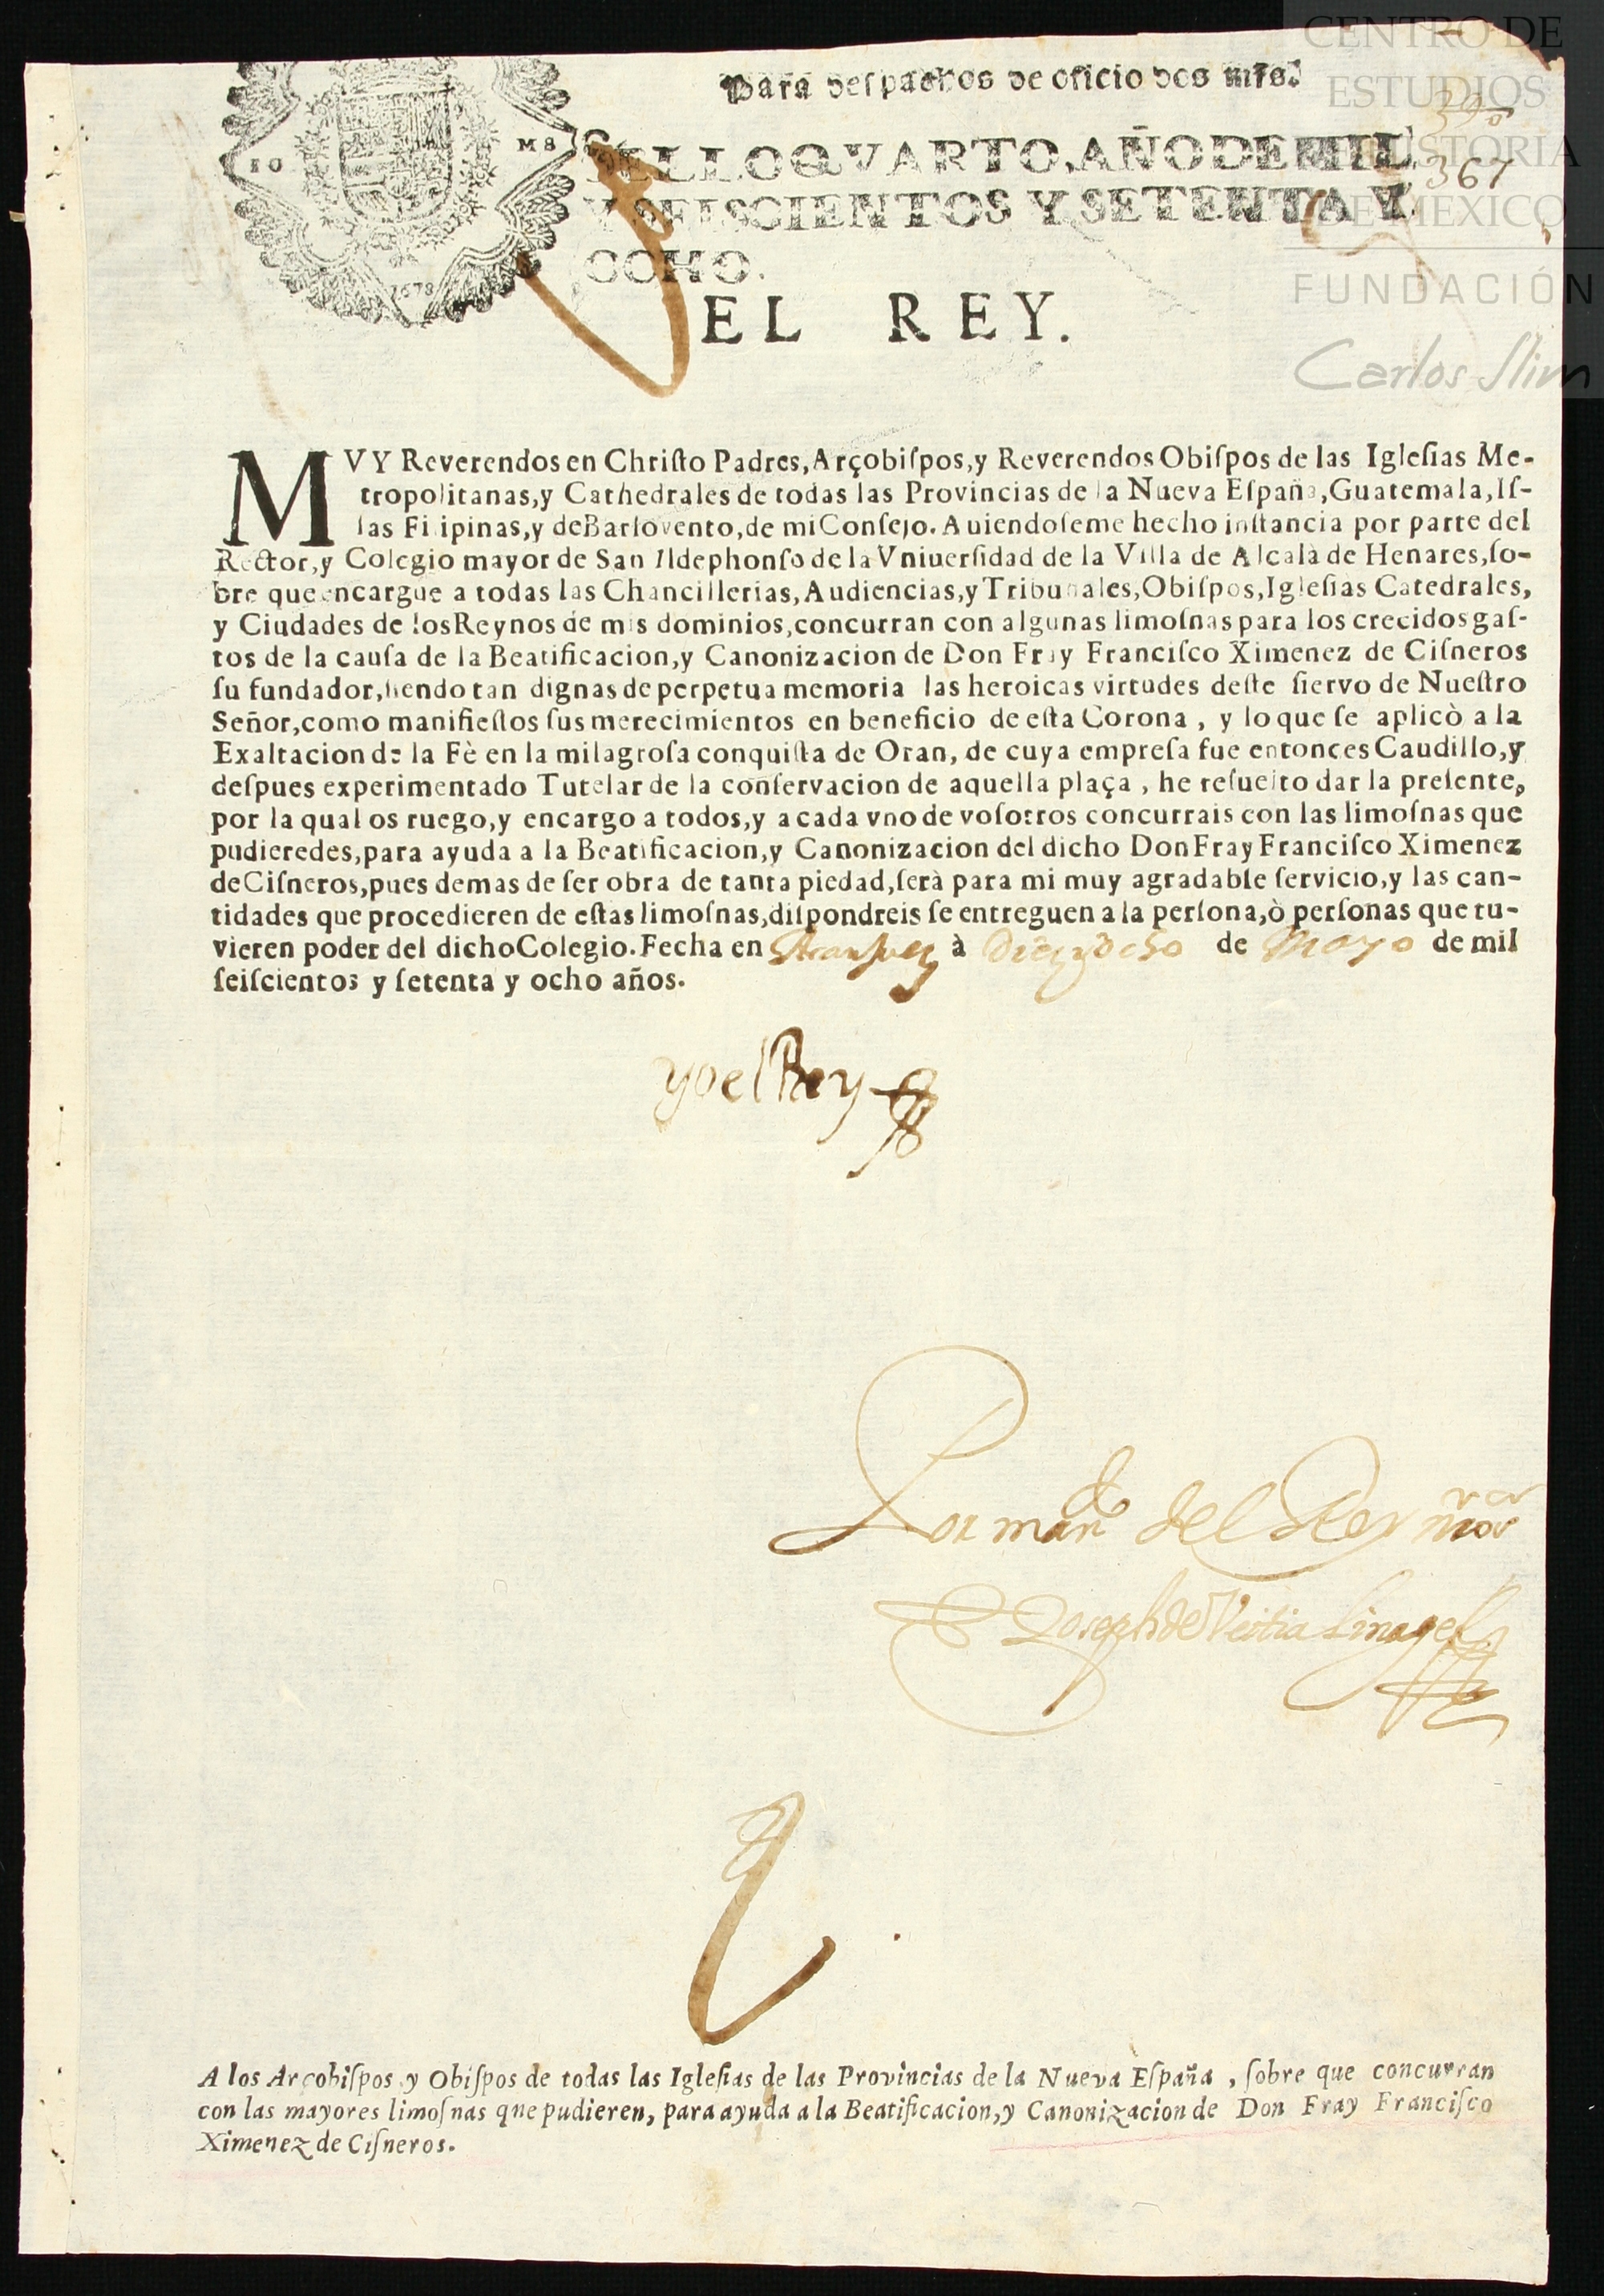 Para despachos de oficio dos mrs.
SELLO QVARTO, AÑO DE MIL
Y SEISCIENTOS Y SETENTA Y
OCHO.
367
1678
EL REY.
MVY Reverendos en Christo Padres, Arçobiſpos, y Reverendos Obiſpos de las Igleſias Me-
tropolitanas, y Cathedrales de todas las Provincias de la Nueva Eſpaña, Guatemala, Iſ-
las Filipinas, y de Barlovento, de mi Conſejo. Auiendoſeme hecho inſtancia por parte del
Rector, y Colegio mayor de San Ildephonſo de la Vniuerſidad de la Villa de Alcalà de Henares, ſo-
bre que encargue a todas las Chancillerias, Audiencias, y Tribunales, Obiſpos, Igleſias Catedrales,
y Ciudades de los Reynos de mis dominios, concurran con algunas limoſnas para los crecidos gaſ-
tos de la cauſa de la Beatificacion, y Canonizacion de Don Fray Franciſco Ximenez de Ciſneros
ſu fundador, ſiendo tan dignas de perpetua memoria las heroicas virtudes deſte ſiervo de Nueſtro
Señor, como manifieſtos ſus merecimientos en beneficio de eſta Corona, y lo que ſe aplicò a la
Exaltacion de la Fè en la milagroſa conquiſta de Oran, de cuya empreſa fue entonces Caudillo, y
deſpues experimentado Tutelar de la conſervacion de aquella plaça, he reſuelto dar la preſente,
por la qual os ruego, y encargo a todos, y a cada vno de voſotros concurrais con las limoſnas que
pudieredes, para ayuda a la Beatificacion, y Canonizacion del dicho Don Fray Franciſco Ximenez
de Ciſneros, pues demas de ſer obra de tanta piedad, ſerà para mi muy agradable ſervicio, y las can-
tidades que procedieren de eſtas limoſnas, diſpondreis ſe entreguen a la perſona, ò perſonas que tu-
vieren poder del dicho Colegio. Fecha en Aranjuez à Diez y ocho de Mayo de mil
ſeiſcientos y ſetenta y ocho años.
yo el Rey
Por mando del Rey nro sr
Joseph de Veitia Linage
A los Arçobiſpos y Obiſpos de todas las Igleſias de las Provincias de la Nueva Eſpaña, ſobre que concurran
con las mayores limoſnas que pudieren, para ayuda a la Beatificacion, y Canonizacion de Don Fray Franciſco
Ximenez de Ciſneros.
CENTRO DE
ESTUDIOS
DE HISTORIA
DE MEXICO
FUNDACIÓN
Carlos Slim